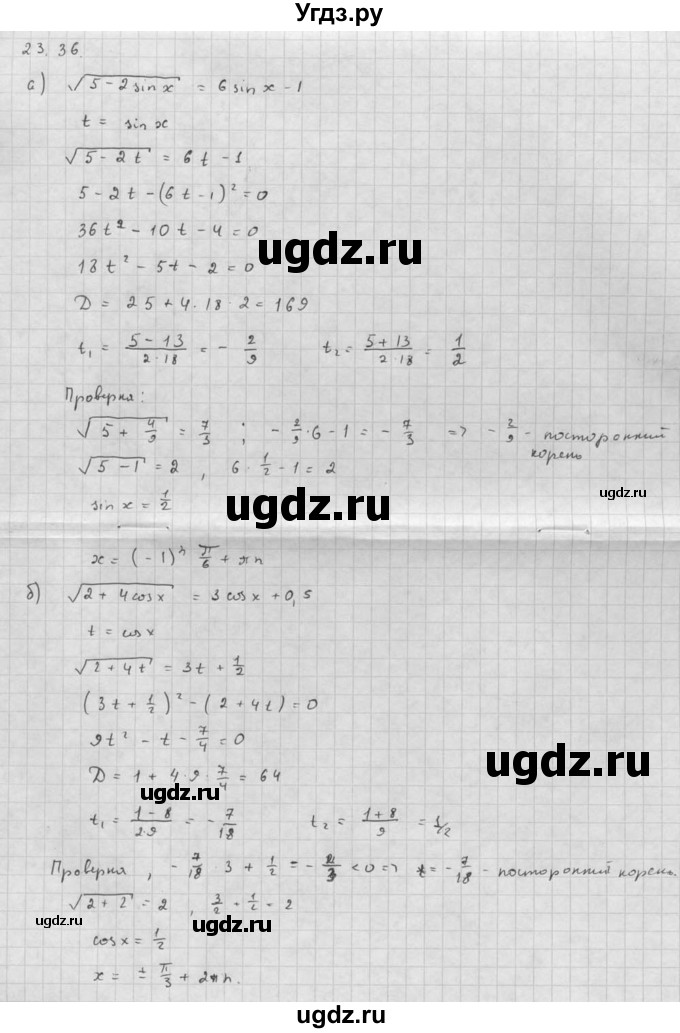 Угдз.ру
23.36.
а) √(5 - 2 sin x) = 6 sin x - 1
t = sin x
√(5 - 2t) = 6t - 1
5 - 2t - (6t - 1)² = 0
36t² - 10t - 4 = 0
ugdz.ru
18t² - 5t - 2 = 0
D = 25 + 4·18·2 = 169
t₁ = (5 - 13)/(2·18) = - 2/9   t₂ = (5 + 13)/(2·18) = 1/2
Проверка:
√(5 + 4/9) = 7/3 ; - 2/9 · 6 - 1 = - 7/3 => - 2/9 - посторонний корень
√(5 - 1) = 2 , 6 · 1/2 - 1 = 2
ugdz.ru
sin x = 1/2
ugdz.ru
x = (-1)ⁿ π/6 + πn
б) √(2 + 4 cos x) = 3 cos x + 0,5
t = cos x
√(2 + 4t) = 3t + 1/2
(3t + 1/2)² - (2 + 4t) = 0
9t² - t - 7/4 = 0
ugdz.ru
D = 1 + 4·9· 7/4 = 64
ugdz.ru
t₁ = (1 - 8)/(2·9) = - 7/18   t₂ = (1 + 8)/9 = 1/2
Проверка , - 7/18 · 3 + 1/2 = - 2/3 < 0 => t = - 7/18 - посторонний корень.
√(2 + 2) = 2 , 3/2 + 1/2 = 2
ugdz.ru
cos x = 1/2
x = ± π/3 + 2πn.
ugdz.ru
ugdz.ru